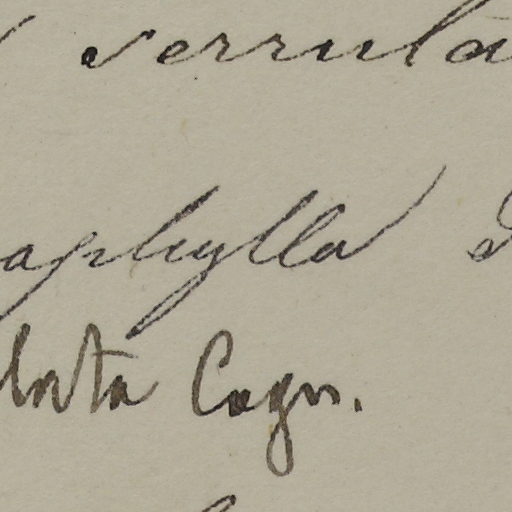 serrula
aphylla
Cogn.